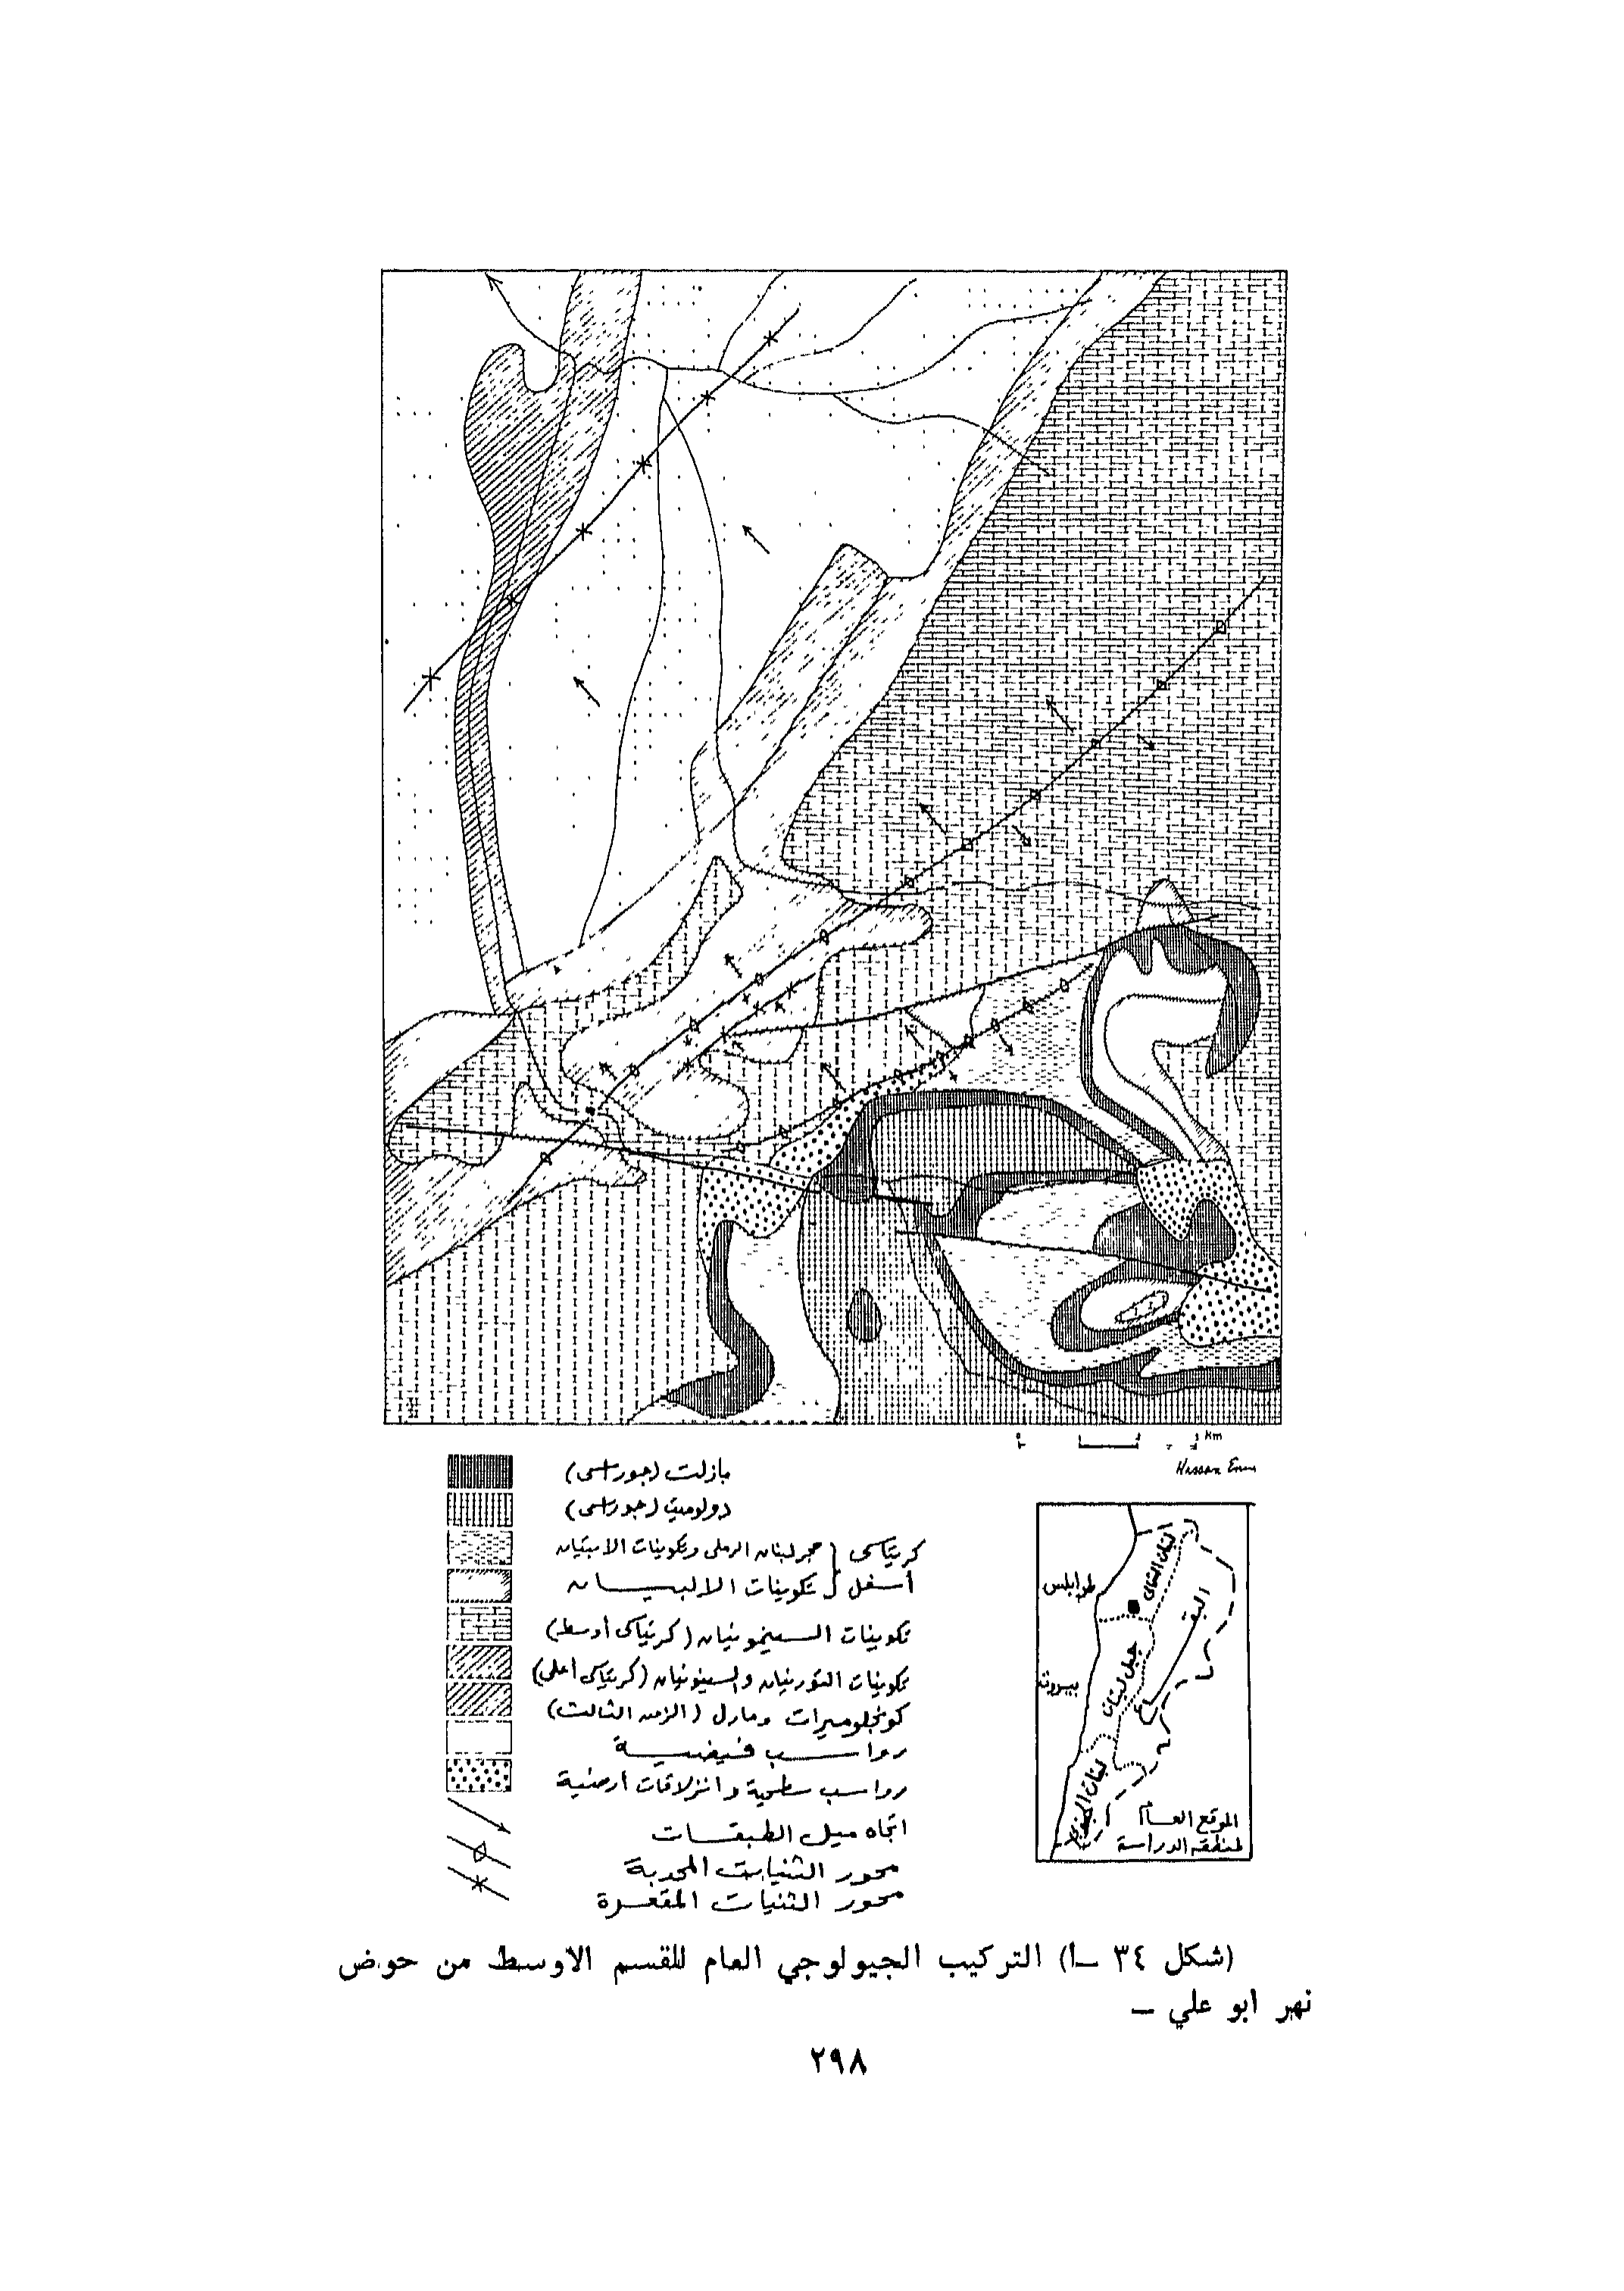 Km
Hassan
بازلت (جوراسى)
دولوميت (جوراسى)
كريتاسى أسفل { حجر لبنان الرملى وتكوينات الابتيان
تكوينات الالبيان
تكوينات السينومونيان (كريتاسى أوسط)
تكوينات التورنيان والسينونيان (كريتاسى أعلى)
كونجلوميرات ومارل (الزمن الثالث)
رواسب فيضية
رواسب سطحية وانزلاقات ارضية
اتجاه ميل الطبقات
محور الثنيات المحدبة
محور الثنيات المقعرة
طرابلس
بيروت
لبنان الشمالى
جبل لبنان
البقاع
لبنان الجنوبى
الموقع العام
لمنطقه الدراسة
(شكل ٣٤ ــ أ) التركيب الجيولوجي العام للقسم الاوسط من حوض
نهر ابو علي ــ
٢٩٨